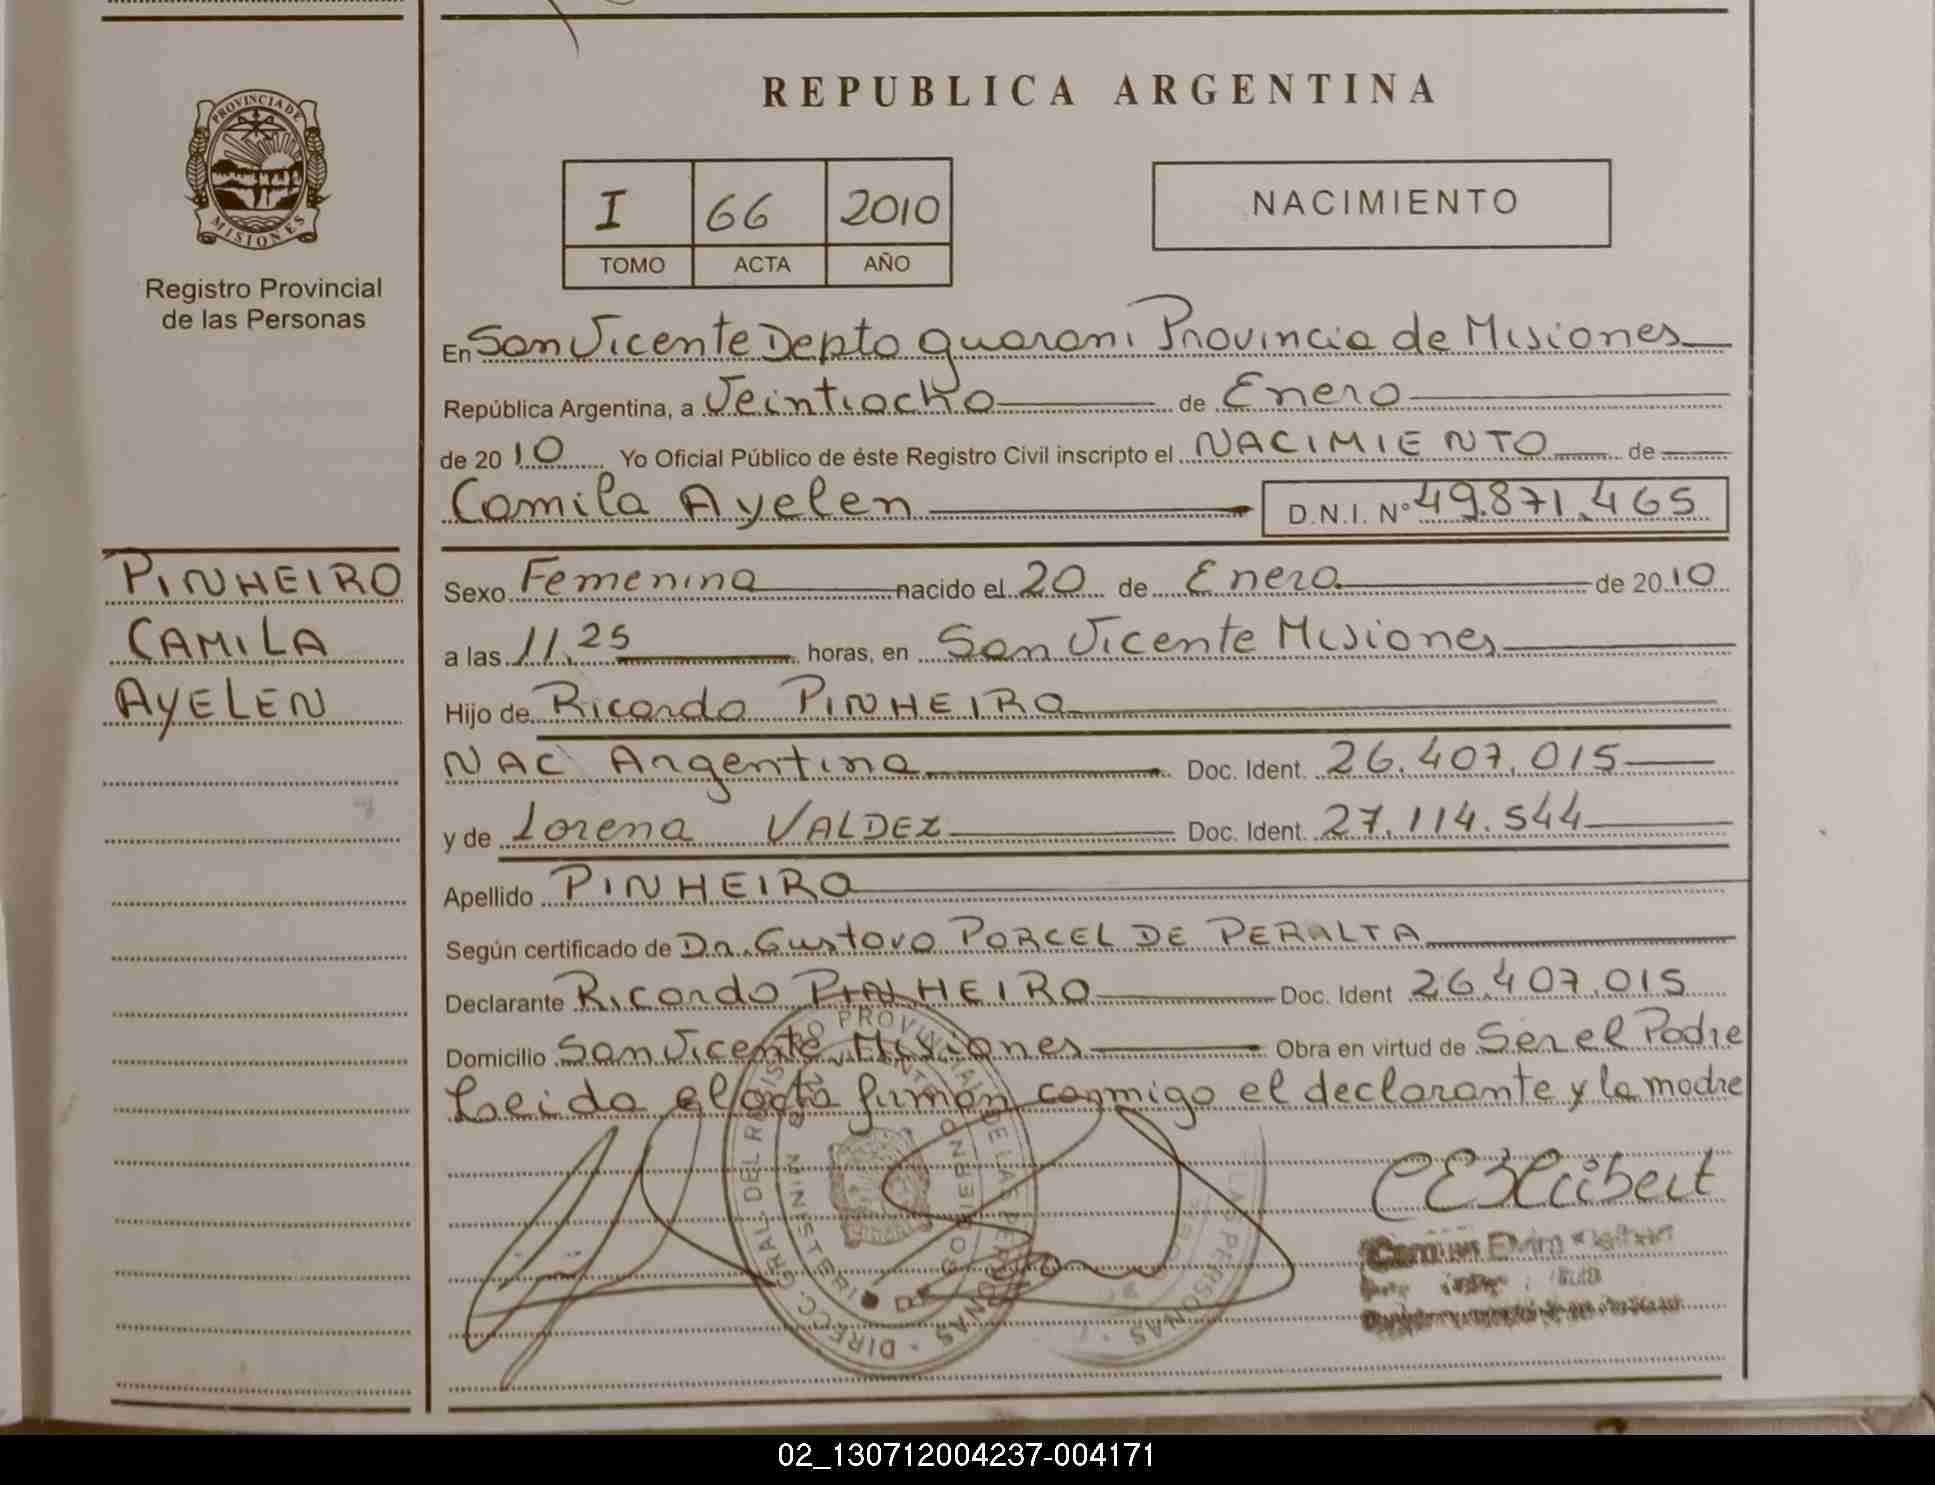 REPUBLICA ARGENTINA
PROVINCIA DE
MISIONES
Registro Provincial
de las Personas
I 66 2010
TOMO ACTA AÑO
NACIMIENTO
En San Vicente Depto guarani Provincia de Misiones
República Argentina, a Veintiocho de Enero
de 2010 Yo Oficial Público de éste Registro Civil inscripto el NACIMIENTO de
Camila Ayelen D.N.I. Nº 49.871.465
PINHEIRO
CAMILA
AYELEN
Sexo Femenina nacido el 20 de Enero de 2010
a las 11.25 horas, en San Vicente Misiones
Hijo de Ricardo PINHEIRO
NAC Argentina Doc. Ident. 26.407.015
y de Lorena VALDEZ Doc. Ident. 27.114.544
Apellido PINHEIRO
Según certificado de Dr. Gustavo PORCEL DE PERALTA
Declarante Ricardo PINHEIRO Doc. Ident 26.407.015
Domicilio San Vicente Misiones Obra en virtud de Ser el Padre
Leida el acta firman conmigo el declarante y la madre
DIRECC. GRAL. DEL REGISTRO PROVINCIAL DE LAS PERSONAS
MINISTERIO DE GOBIERNO
LAS PERSONAS
02_130712004237-004171